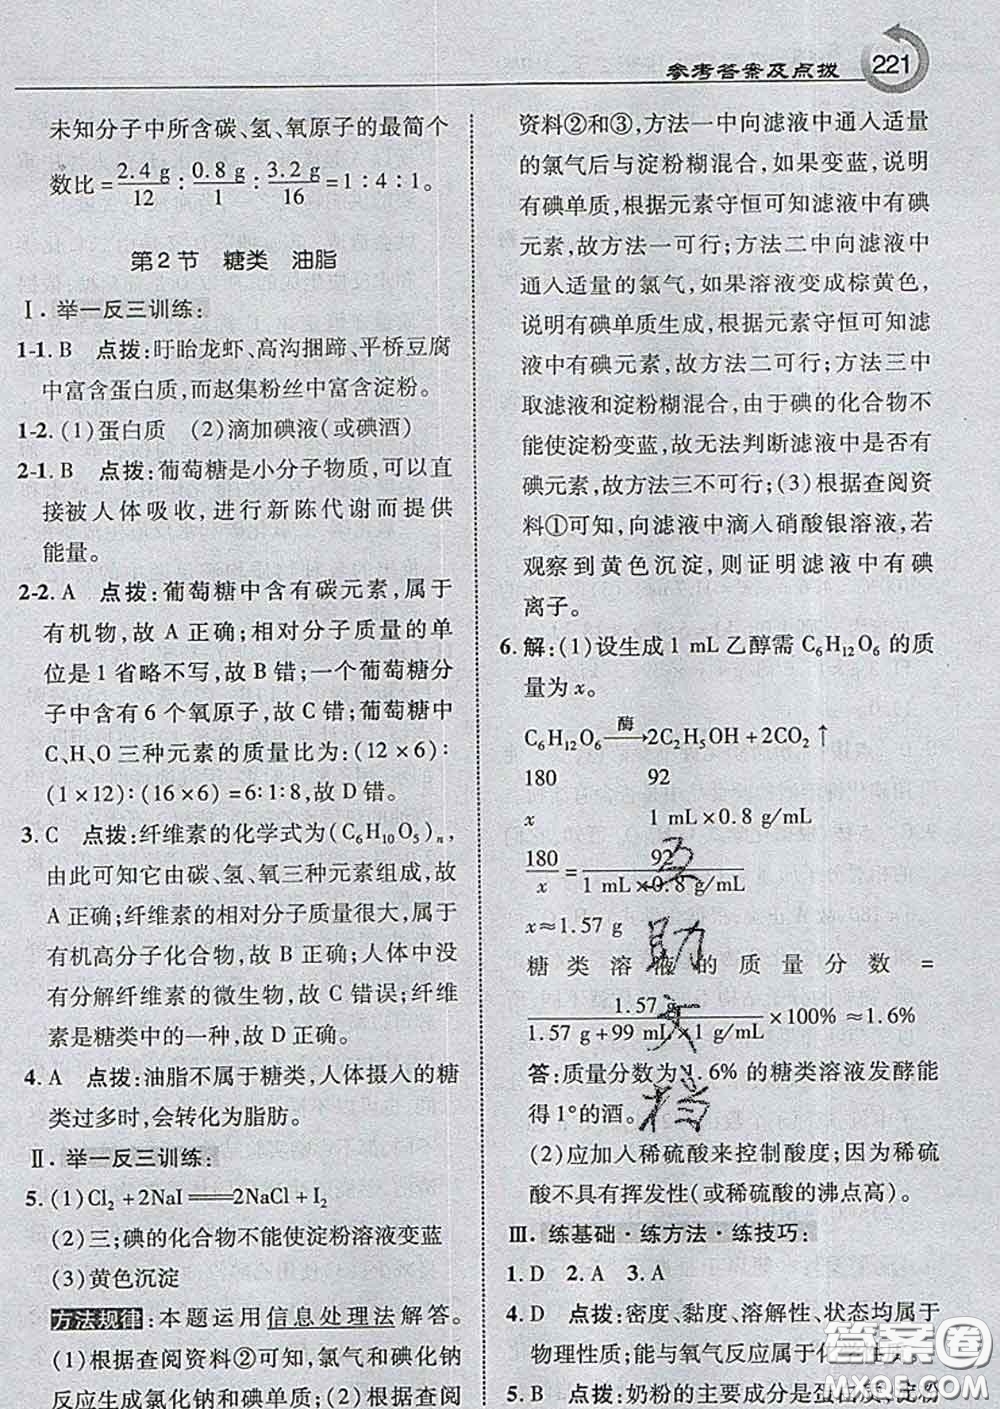 参考答案及点拨 221
未知分子中所含碳、氢、氧原子的最简个
数比=2.4 g/12:0.8 g/1:3.2 g/16=1:4:1。
第2节 糖类 油脂
Ⅰ. 举一反三训练:
1-1. B 点拨:盱眙龙虾、高沟捆蹄、平桥豆腐
中富含蛋白质,而赵集粉丝中富含淀粉。
1-2. (1)蛋白质 (2)滴加碘液(或碘酒)
2-1. B 点拨:葡萄糖是小分子物质,可以直
接被人体吸收,进行新陈代谢而提供
能量。
2-2. A 点拨:葡萄糖中含有碳元素,属于
有机物,故 A 正确;相对分子质量的单
位是 1 省略不写,故 B 错;一个葡萄糖分
子中含有 6 个氧原子,故 C 错;葡萄糖中
C、H、O 三种元素的质量比为:(12×6):
(1×12):(16×6)=6:1:8,故 D 错。
3. C 点拨:纤维素的化学式为(C₆H₁₀O₅)ₙ,
由此可知它由碳、氢、氧三种元素组成,故
A 正确;纤维素的相对分子质量很大,属于
有机高分子化合物,故 B 正确;人体中没
有分解纤维素的微生物,故 C 错误;纤维
素是糖类中的一种,故 D 正确。
4. A 点拨:油脂不属于糖类,人体摄入的糖
类过多时,会转化为脂肪。
Ⅱ. 举一反三训练:
5. (1)Cl₂+2NaI══2NaCl+I₂
(2)三;碘的化合物不能使淀粉溶液变蓝
(3)黄色沉淀
方法规律:本题运用信息处理法解答。
(1)根据查阅资料②可知,氯气和碘化钠
反应生成氯化钠和碘单质;(2)根据查阅
资料②和③,方法一中向滤液中通入适量
的氯气后与淀粉糊混合,如果变蓝,说明
有碘单质,根据元素守恒可知滤液中有碘
元素,故方法一可行;方法二中向滤液中
通入适量的氯气,如果溶液变成棕黄色,
说明有碘单质生成,根据元素守恒可知滤
液中有碘元素,故方法二可行;方法三中
取滤液和淀粉糊混合,由于碘的化合物不
能使淀粉变蓝,故无法判断滤液中是否有
碘元素,故方法三不可行;(3)根据查阅资
料①可知,向滤液中滴入硝酸银溶液,若
观察到黄色沉淀,则证明滤液中有碘
离子。
6. 解:(1)设生成 1 mL 乙醇需 C₆H₁₂O₆ 的质
量为 x。
C₆H₁₂O₆ 酶→ 2C₂H₅OH+2CO₂↑
180 92
x 1 mL×0.8 g/mL
180/x=92/(1 mL×0.8 g/mL)
x≈1.57 g
糖类溶液的质量分数=
1.57 g/(1.57 g+99 mL×1 g/mL)×100%≈1.6%
答:质量分数为 1.6%的糖类溶液发酵能
得 1°的酒。
(2)应加入稀硫酸来控制酸度;因为稀硫
酸不具有挥发性(或稀硫酸的沸点高)。
Ⅲ. 练基础·练方法·练技巧:
1. D 2. A 3. A
4. D 点拨:密度、黏度、溶解性、状态均属于
物理性质;能与氧气反应属于化学性质。
5. B 点拨:奶粉的主要成分是蛋白质,淀粉
互助文档
答案圈
MXQE.COM